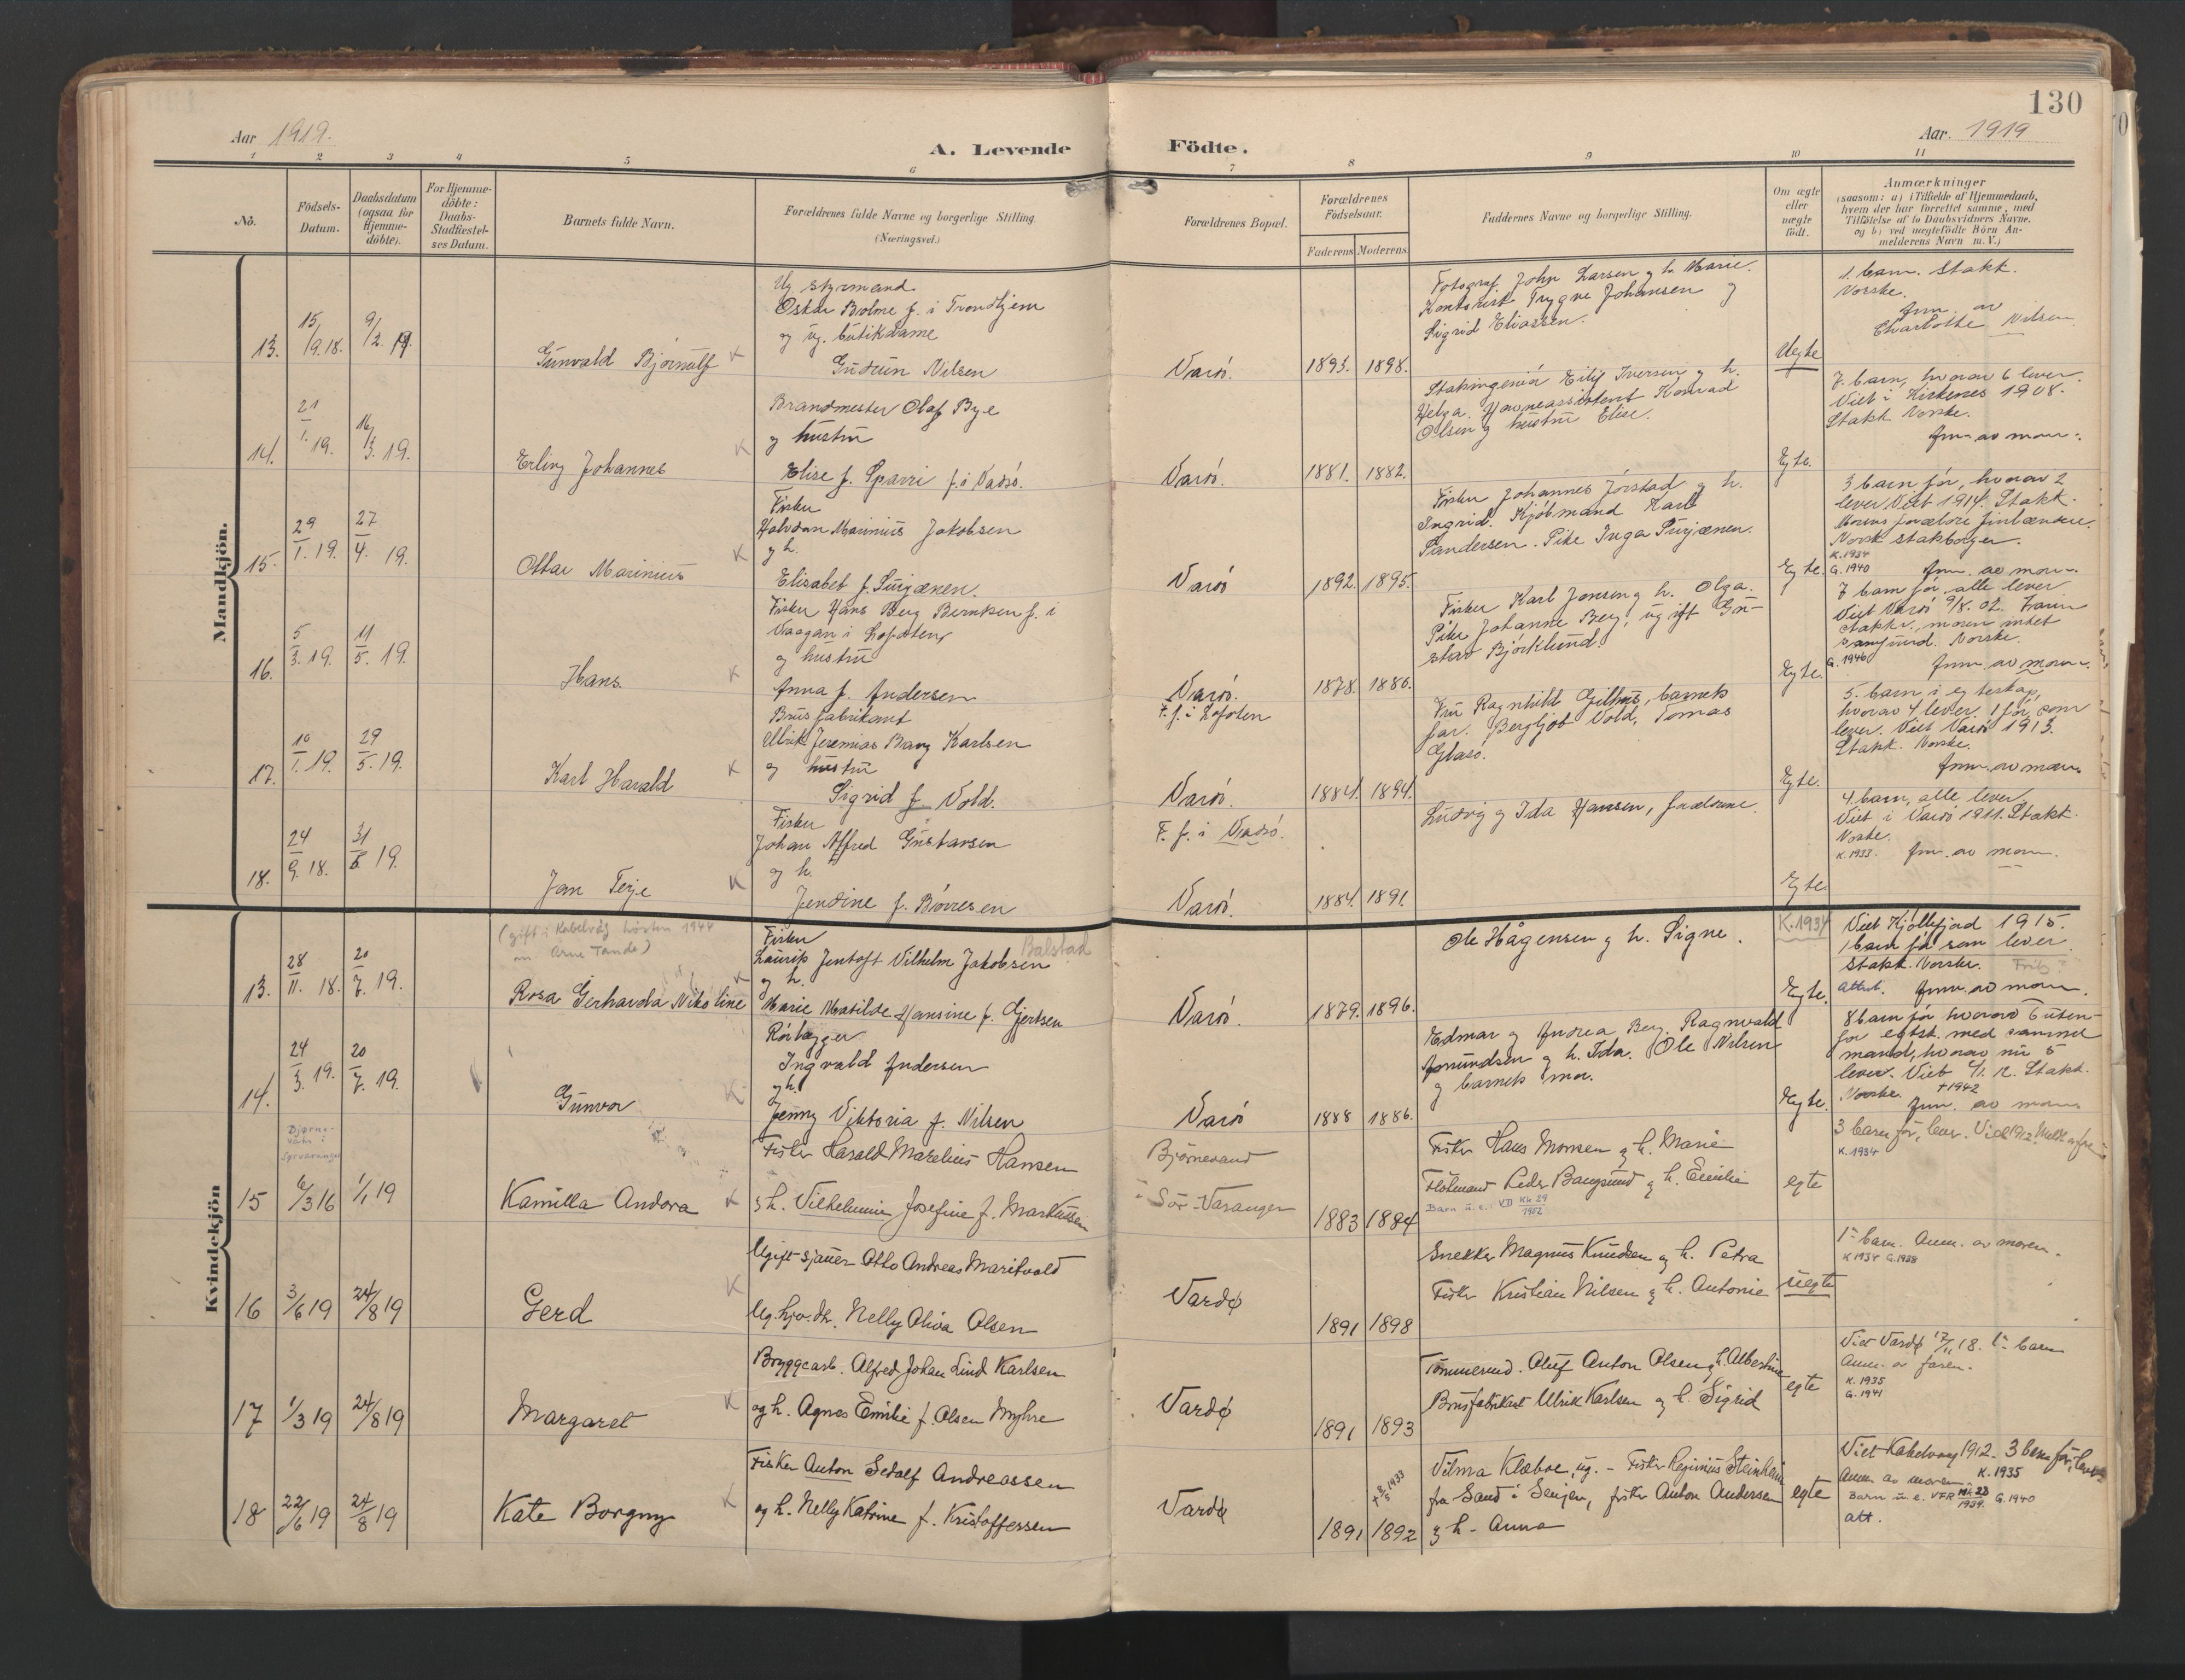 130
Aar 1919.
A. Levende Födte.
Aar. 1919
1 2 3 4 5 6 7 8 9 10 11
No.
Födsels-
Datum.
Daabsdatum
(ogsaa for
Hjemme-
döbte).
For Hjemme-
döbte:
Daabs-
Stadfæstel-
ses Datum.
Barnets fulde Navn.
Forældrenes fulde Navne og borgerlige Stilling
(Næringsvei.)
Forældrenes Bopæl.
Forældrenes
Födselsaar.
Faderens Moderens
Faddernes Navne og borgerlige Stilling.
Om ægte
eller
uægte
födt.
Anmærkninger
(saasom: a) i Tilfælde af Hjemmedaab,
hvem der har forrettet samme, med
Tilföielse af to Daabsvidners Navne,
og b) ved uægtefödte Börn An-
melderens Navn m. V.)
Mandkjön.
13.
15/9.18.
9/2.19.
Gunvald Bjørnulf
Ug. styrmand
Oskar Bolme f. i Trondhjem
og ug. butikdame
Gudrun Nilsen
Vardö.
1893. 1898.
Fotograf John Larsen og h. Marie.
Kontorist Trygve Johansen og
Sigrid Eliassen.
Uegte
1. barn. Statk.
Norske.
Anm. av
Charlotte Nilsen
14.
21/1.19.
16/3.19.
Erling Johannes
Brandmester Olaf Bye
og hustru
Elise f. Sparri f. i Vadsö.
Vardö.
1881. 1882.
Statsingeniör Eilif Iversen og h.
Helga. Havneassistent Konrad
Olsen og hustru Elise.
Egte.
7. barn, hvorav 6 lever.
Viet i Kirkenes 1908.
Statk. Norske.
Anm. av mor.
15.
29/1.19.
27/4.19.
Ottar Marinius
Fisker
Halvdan Marinius Jakobsen
og h.
Elisabet f. Surjænen.
Vardö
1892. 1895.
Fisker Johannes Jörstad og h.
Ingrid. Kjöbmand Karl
Sandersen. Pike Inga Surjænen.
Egte.
3 barn för, hvorav 2
lever. Viet 1914. Statk.
Morens forældre finlændere.
Norsk statsborger.
K. 1934
G. 1940
Anm. av mor.
16.
5/3.19.
11/5.19.
Hans.
Fisker Hans Berg Berntsen f. i
Vaagan i Lofoten
og hustru
Anna f. Andersen
Vardö.
F. f. i Lofoten
1878. 1886.
Fisker Karl Jensen og h. Olga.
Pike Johanne Berg, ugift Gu-
stav Björklund.
Egte.
7 barn för, alle lever
Viet Vardö 9/8. 02. Faren
statkr., moren intet
samfund. Norske.
G. 1946
Anm. av mor.
17.
10/1.19.
29/5.19.
Karl Harald
Brusfabrikant
Ulrik Jeremias Bang Karlsen
og hustru
Sigrid f. Vold.
Vardö.
F. f. i Vadsö.
1884. 1894.
Fru Ragnhild Gilthus, barnets
far. Bergljot Vold, Tomas
Glasö.
Egte.
5. barn i egteskap,
hvorav 4 lever. 1 för, som
lever. Viet Vardö 1913.
Statk. Norske.
Anm. av mor.
18.
24/9.18.
31/8.19.
Jan Terje
Fisker
Johan Alfred Gustavsen
og h.
Jendine f. Börresen
Vardö.
1884. 1891.
Ludvig og Ida Hansen, forældrene.
Egte.
4. barn, alle lever
Viet i Vardö 1911. Statk.
Norske.
K. 1933. Anm. av mor.
Kvindekjön
(gift i Kabelvåg hösten 1944
m. Arne Tande)
13.
28/11.18.
20/7.19.
Rosa Gerharda Nikoline
Fisker Balstad
Laurits Jentoft Vilhelm Jakobsen
og h.
Marie Matilde Hansine f. Gjertsen
Vardö.
1879. 1896.
Ole Hågensen og h. Signe.
K. 1934
Egte.
Viet Kjöllefjord 1915.
1 barn för som lever.
Statk. Norske.
Attest. Anm. av mor.
14.
24/3.19.
20/7.19.
Gunvor
Rörlægger
Ingvald Andersen
og h.
Jenny Viktoria f. Nilsen
Vardö
1888 1886.
Edmar og Andrea Berg. Ragnvald
Amundsen og h. Ida. Ole Nilsen
og barnets mor.
Egte.
8 barn för hvorav 6 uten-
for egtsk. med samme
mand, hvorav nu 5
lever. Viet 6/1. 12. Statk.
Norske. +1942
Anm. av mor.
Bjørne-
vatn i
Sørvaranger
15
6/3 16
1/1 19
Kamilla Andora
Fisker Harald Marelius Hansen
og h. Vilhelmine Josefine f. Markussen
Björnevand
i Sör-Varanger
1883 1884
Fisker Hans Monsen og h. Marie
Flötmand Peder Bangsund og h. Emilie
Barn u.e. VD Kk 29/1952
egte
3 barn för, lever. Viet 1912.
K. 1934
16
3/6 19
24/8 19
Gerd
Ugift sjauer Otto Andreas Maritvold
Ug. hjv. dt. Nelly Oliva Olsen
Vardø
1891 1898
Snekker Magnus Knudsen og h. Petra
Fisker Kristian Nilsen og h. Antonie
uegte
1ste barn. Anm. av moren.
K 1934 G. 1938
17
1/3 19
24/8 19
Margaret
Bryggearb. Alfred Johan Lind Karlsen
og h. Agnes Emilie f. Olsen Myhre
Vardø
1891 1893
Tömmermd. Oluf Anton Olsen og h. Albertine
Brusfabrikant Ulrik Karlsen og h. Sigrid
egte
Viet Vardø 17/11 18. 1ste barn
Anm. av faren.
K. 1935
G. 1941
18
22/6 19
24/8 19
Kate Borgny
Fisker Anton Sedolf Andreassen
og h. Nelly Katrine f. Kristoffersen
Vardø
+ 8/5 1933
1891 1892
Vilma Klæboe, ug. - Fisker Reginius Steinheim
fra Sand i Senjen, fisker Anton Andersen
og h. Anna
egte
Viet Kabelvaag 1912. 3 barn för, lever
Anm. av moren. K. 1935
Barn u. e. VFR Nk 23/1939. G. 1940
att.